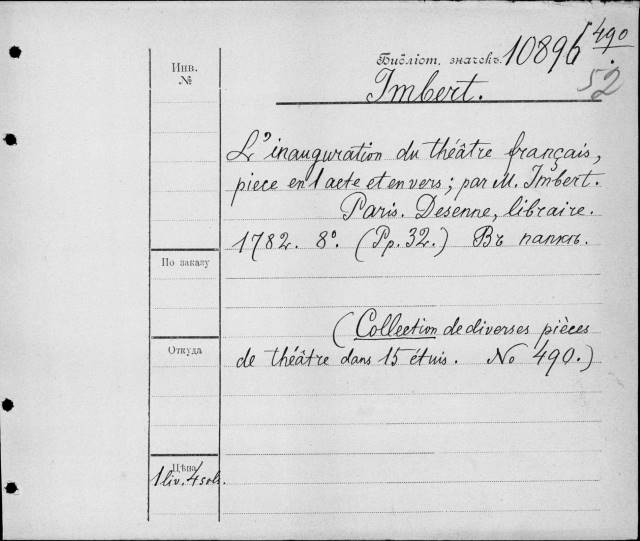 Библіот. значекъ. 10896 490
52
Инв.
№
Imbert.
L'inauguration du théâtre français,
piece en 1 acte et en vers; par M. Imbert.
Paris. Desenne, libraire.
1782. 8°. (Pp. 32.) Въ папкѣ.
По заказу
(Collection de diverses pièces
Откуда
de théâtre dans 15 étuis. No 490.)
Цѣна
1 liv. 4 sols.